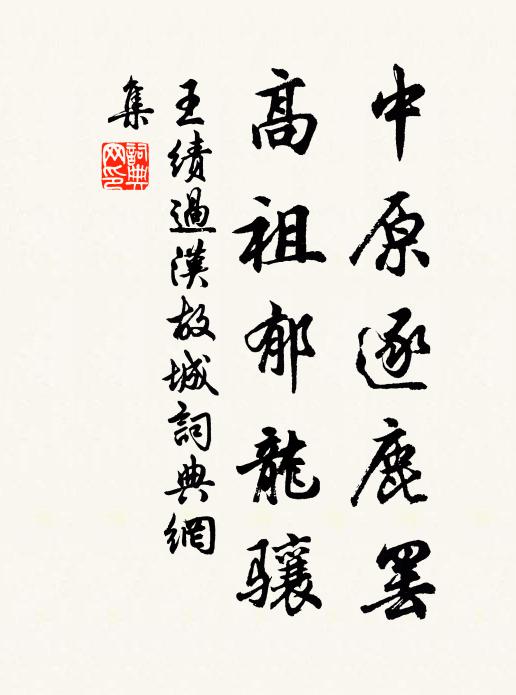 中原逐鹿罢
高祖郁龍骧
王绩過漢故城詞典網
集
詞典
网印